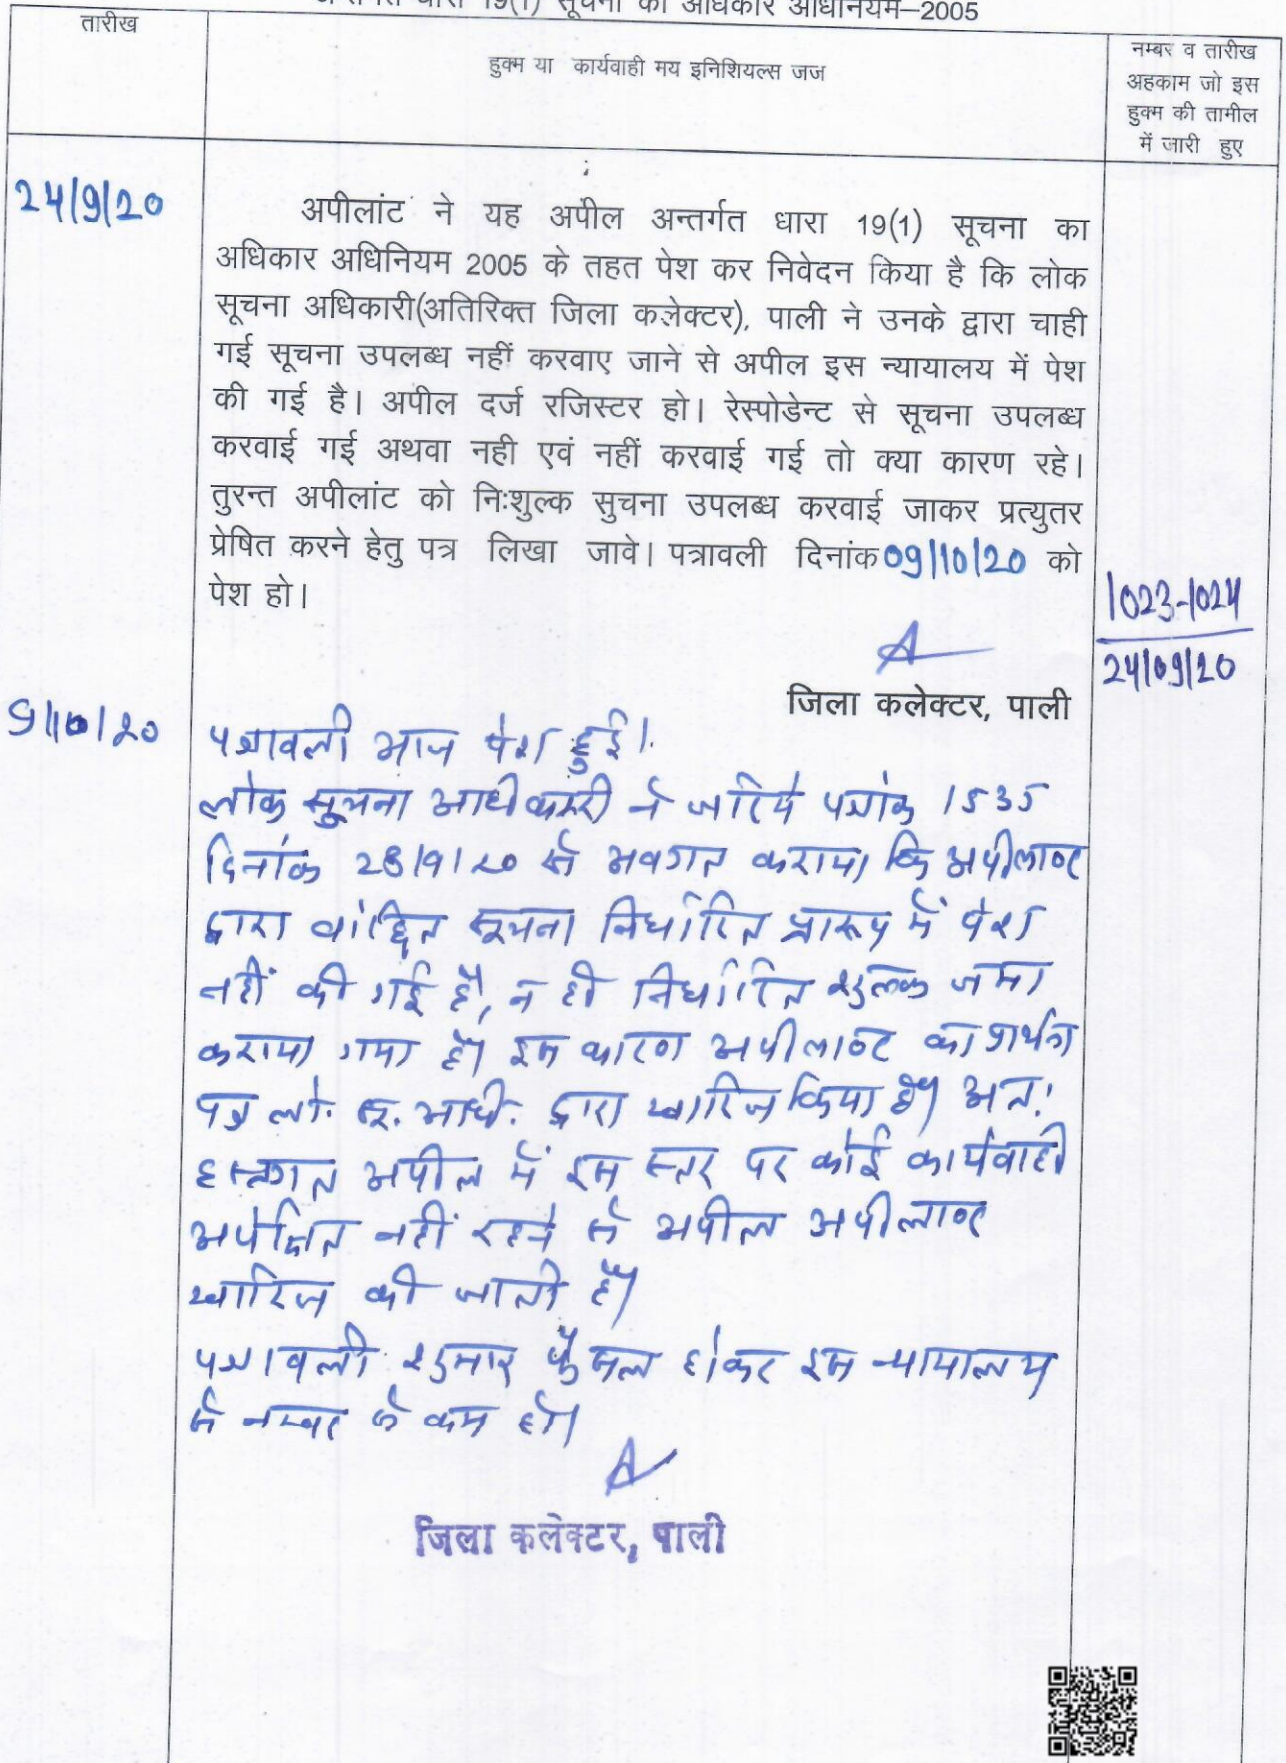 अन्तर्गत धारा 19(1) सूचना का अधिकार अधिनियम–2005
तारीख
हुक्म या कार्यवाही मय इनिशियल्स जज
नम्बर व तारीख
अहकाम जो इस
हुक्म की तामील
में जारी हुए
24/9/20
अपीलांट ने यह अपील अन्तर्गत धारा 19(1) सूचना का
अधिकार अधिनियम 2005 के तहत पेश कर निवेदन किया है कि लोक
सूचना अधिकारी(अतिरिक्त जिला कलेक्टर), पाली ने उनके द्वारा चाही
गई सूचना उपलब्ध नहीं करवाए जाने से अपील इस न्यायालय में पेश
की गई है। अपील दर्ज रजिस्टर हो। रेस्पोडेन्ट से सूचना उपलब्ध
करवाई गई अथवा नही एवं नहीं करवाई गई तो क्या कारण रहे।
तुरन्त अपीलांट को निःशुल्क सुचना उपलब्ध करवाई जाकर प्रत्युतर
प्रेषित करने हेतु पत्र लिखा जावे। पत्रावली दिनांक 09/10/20 को
पेश हो।
1023-1024
24/09/20
जिला कलेक्टर, पाली
9/10/20
पत्रावली आज पेश हुई।
लोक सूचना अधिकारी ने जरिये पत्रांक 1535
दिनांक 28/9/20 से अवगत कराया कि अपीलाण्ट
द्वारा वांछित सूचना निर्धारित प्रारूप में पेश
नहीं की गई है, न ही निर्धारित शुल्क जमा
कराया गया है। इस कारण अपीलाण्ट का प्रार्थना
पत्र लो. सू. अधि. द्वारा खारिज किया है। अतः
हस्तगत अपील में इस स्तर पर कोई कार्यवाही
अपेक्षित नहीं रहने से अपील अपीलाण्ट
खारिज की जाती है।
पत्रावली शुमार फैसल होकर इस न्यायालय
के नम्बर से कम हो।
जिला कलेक्टर, पाली